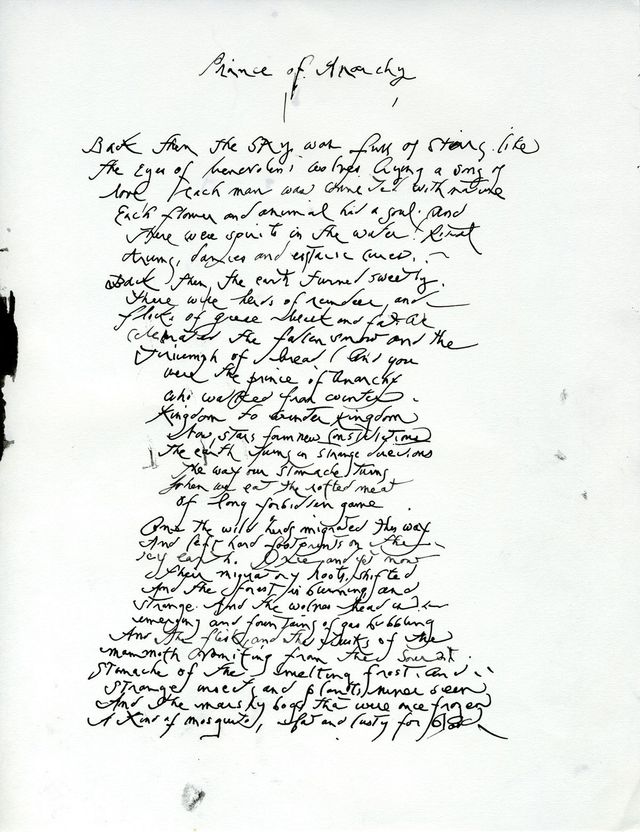 Prince of Anarchy
Back then the sky was full of stars like
the eyes of benevolent wolves crying a song of
love each man was connected with nature
Each flower and animal had a soul and
there were spirits in the water. Ritual
drums, dances and ecstatic cures.
Back then, the earth turned sweetly.
There were herds of reindeer, and
flocks of geese sweet and fat. We
celebrated the fallen snow and the
triumph of bread. And you
were the prince of anarchy
who walked from winter
Kingdom to winter kingdom
Now, stars form new constellations
The earth turns in strange directions
The way our stomachs turns
when we eat the rotted meat
of long forbidden game
Once the wild herds migrated this way
And left hard footprints on the
icy earth. and yet now
their migratory roots, shifted
And the forest is burning and
strange. And the wolves head
emerging and fountains of gas bubbling
And the flesh and the of the
mammoth vomiting from the
stomachs of the smelting frost. And
strange insects and plants never seen
And the marshy bogs that were once frozen
A kind of mosquito, fat and lusty for